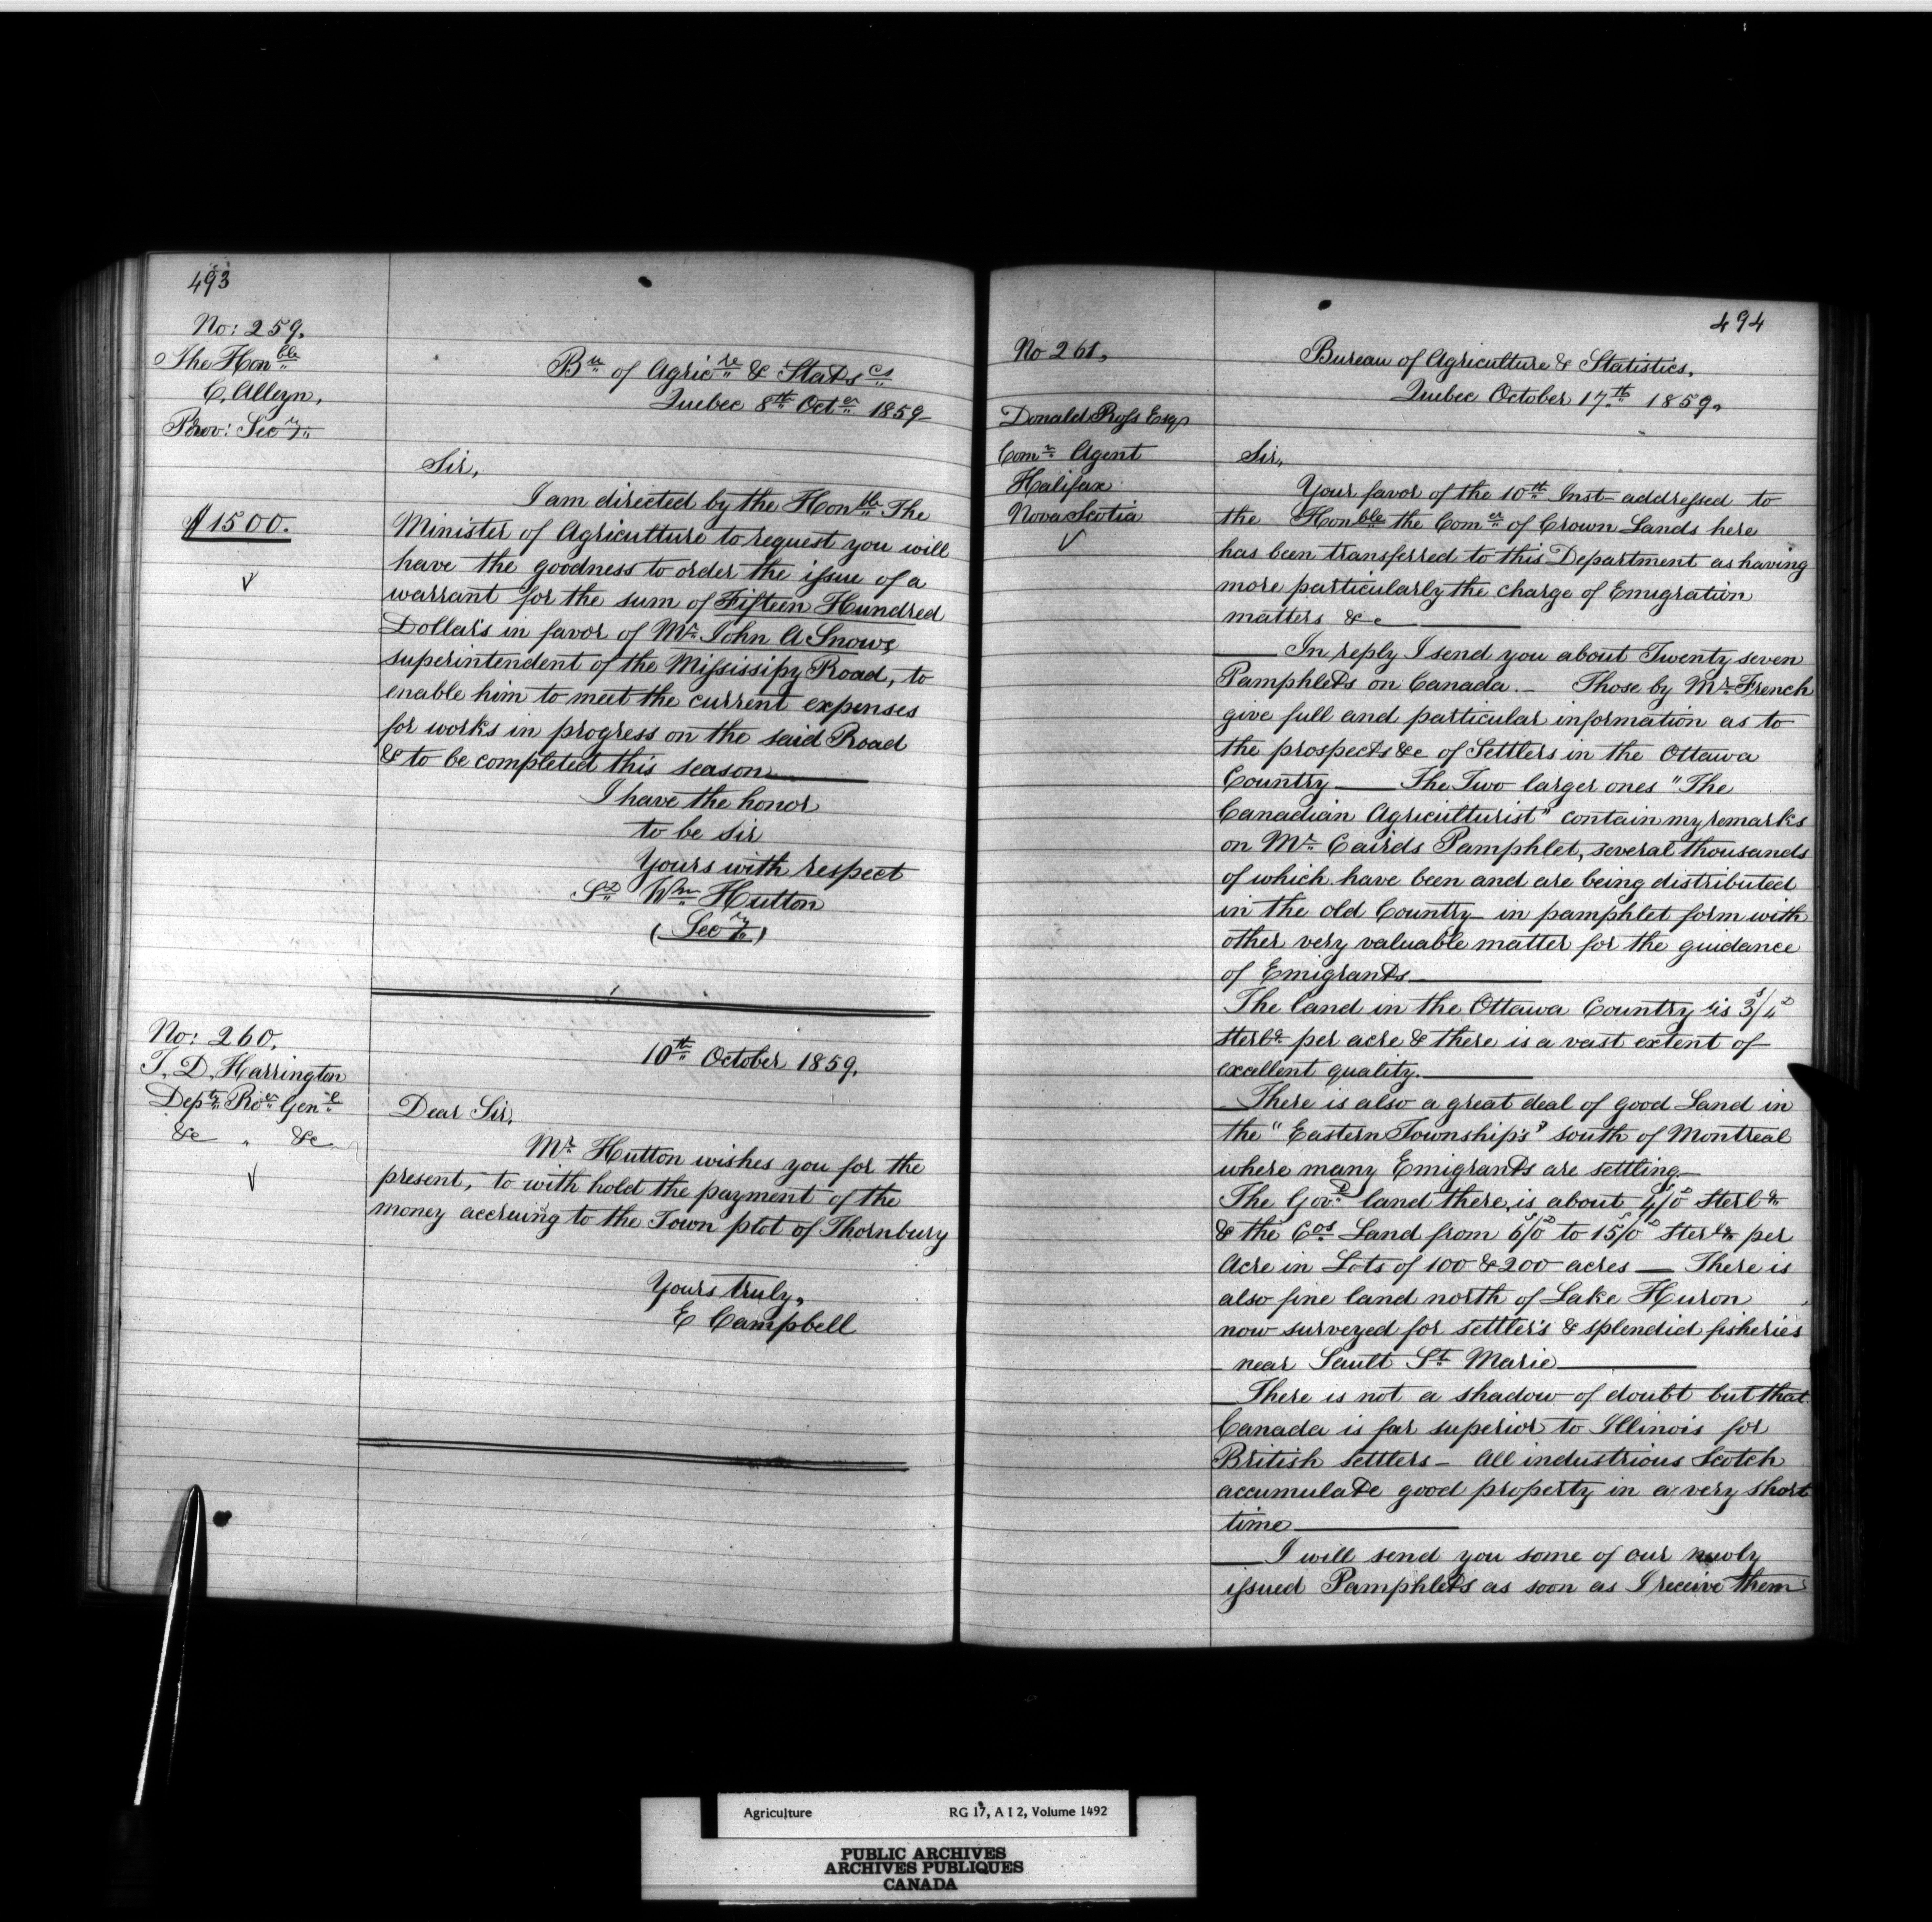 493
No: 259.
The Honble
C. Alleyn,
Prov: Secry.
$1500.
Bu of Agricre & Statscs
Quebec 8th Octer 1859
Sir,
I am directed by the Honble The
Minister of Agricutture to request you will
have the goodness to order the issue of a
warrant for the sum of Fifteen Hundred
Dollars in favor of Mr. John A Snow,
superintendent of the Mississipy Road, to
enable him to meet the current expenses
for works in progress on the said Road
& to be completed this season
I have the honor
to be sir
Yours with respect
Sd Wm Hutton
(Secry)
No: 260.
T. D. Harrington
Depty Rer Genl
&c " &c
10th October 1859.
Dear Sir,
Mr. Hutton wishes you for the
present, to with hold the payment of the
money accruing to the Town plot of Thornbury
Yours truly,
E Campbell
494
No 261.
Donald Ross Esqr
Comn Agent
Halifax
Nova Scotia
Bureau of Agriculture & Statistics,
Quebec October 17th 1859.
Sir,
Your favor of the 10th Inst addressed to
the Honble the Comer of Crown Lands here
has been transferred to this Department as having
more particularly the charge of Emigration
matters &c
In reply I send you about Twenty seven
Pamphlets on Canada. – Those by Mr. French
give full and particular information as to
the prospects &c of Settlers in the Ottawa
Country — The Two larger ones "The
Canadian Agriculturist" contain my remarks
on Mr. Cairds Pamphlet, several thousands
of which have been and are being distributed
in the old Country – in pamphlet form with
other very valuable matter for the guidance
of Emigrants
The land in the Ottawa Country is 3s/4d
sterlg per acre & there is a vast extent of
excellent quality.
There is also a great deal of good Land in
the "Eastern Township's" south of Montreal
where many Emigrants are settling –
The Govt land there, is about 4s/0d Sterlg
& the Cos Land from 6s/0d to 15s/0d Sterlg per
Acre in Lots of 100 & 200 acres — There is
also fine land north of Lake Huron
now surveyed for settler's & splendid fisheries
near Sault St Marie
There is not a shadow of doubt but that
Canada is far superior to Illinois for
British settlers – All industrious Scotch
accumulate good property in a very short
time
I will send you some of our newly
issued Pamphlets as soon as I receive them
Agriculture RG 17, A I 2, Volume 1492
PUBLIC ARCHIVES
ARCHIVES PUBLIQUES
CANADA